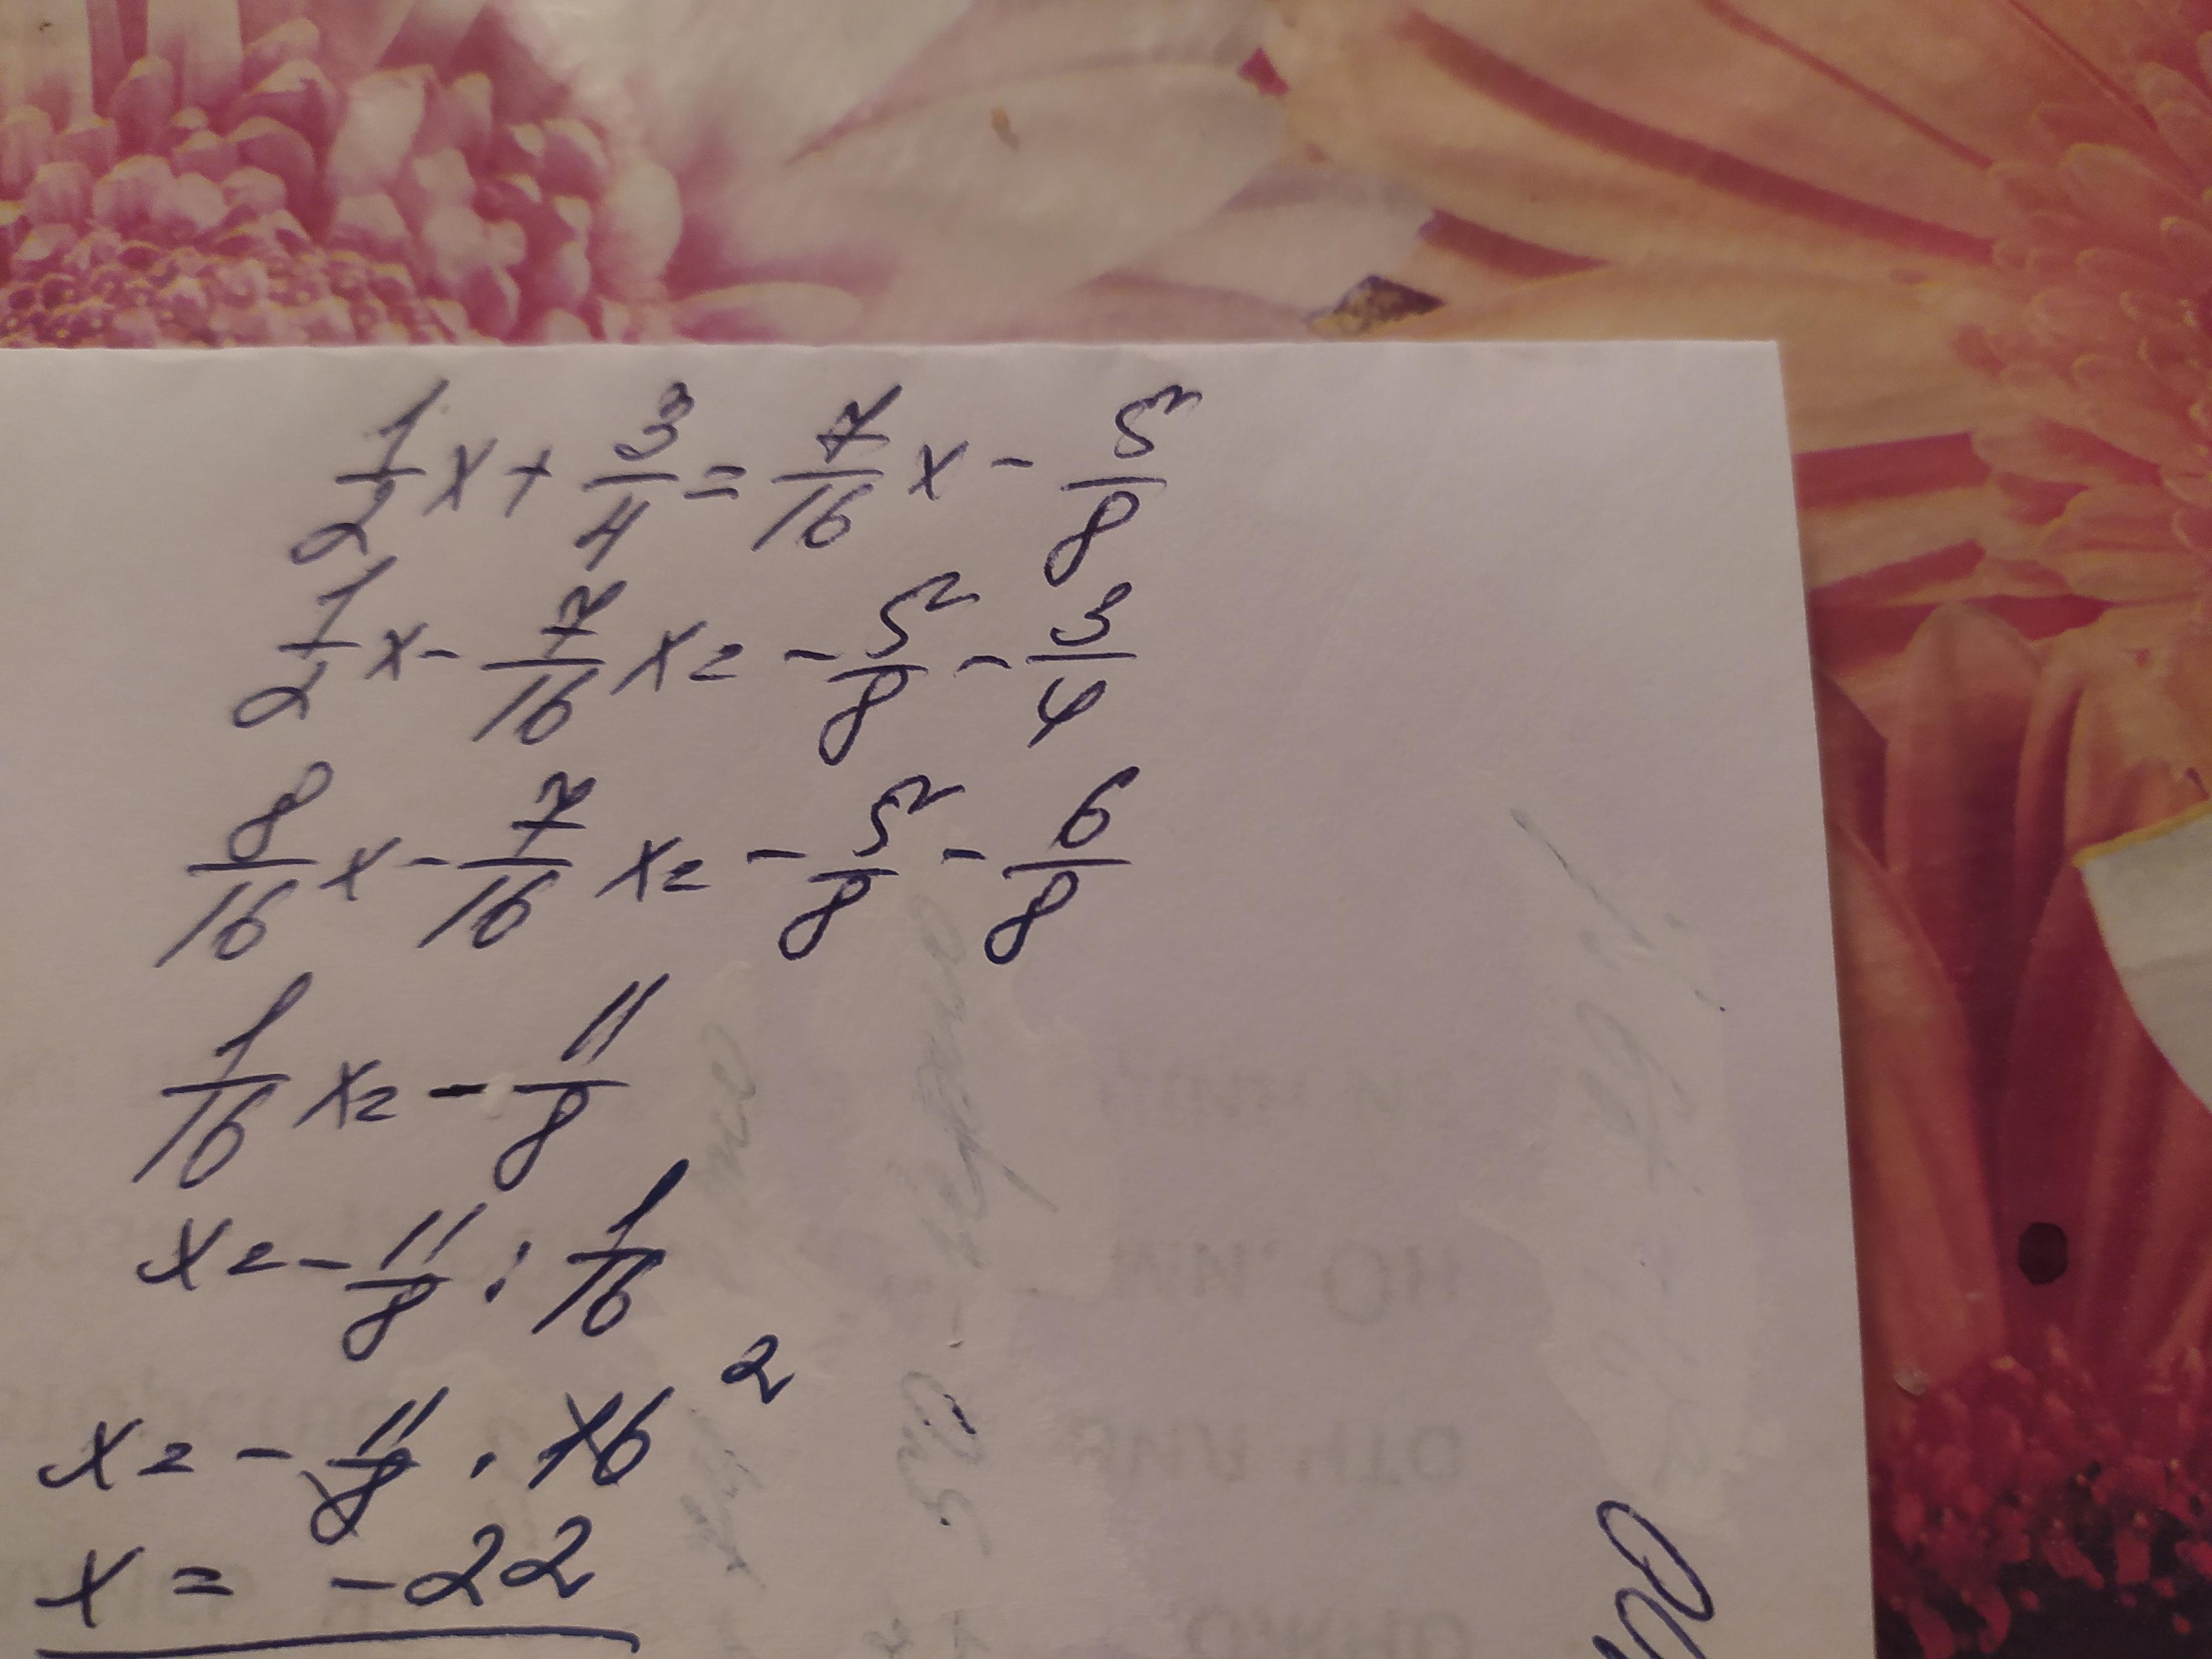 1/2 x + 3/4 = 7/16 x - 5/8
1/2 x - 7/16 x = - 5/8 - 3/4
8/16 x - 7/16 x = - 5/8 - 6/8
1/16 x = - 11/8
x = - 11/8 : 1/16
x = - 11/8 · 16 2
x = -22